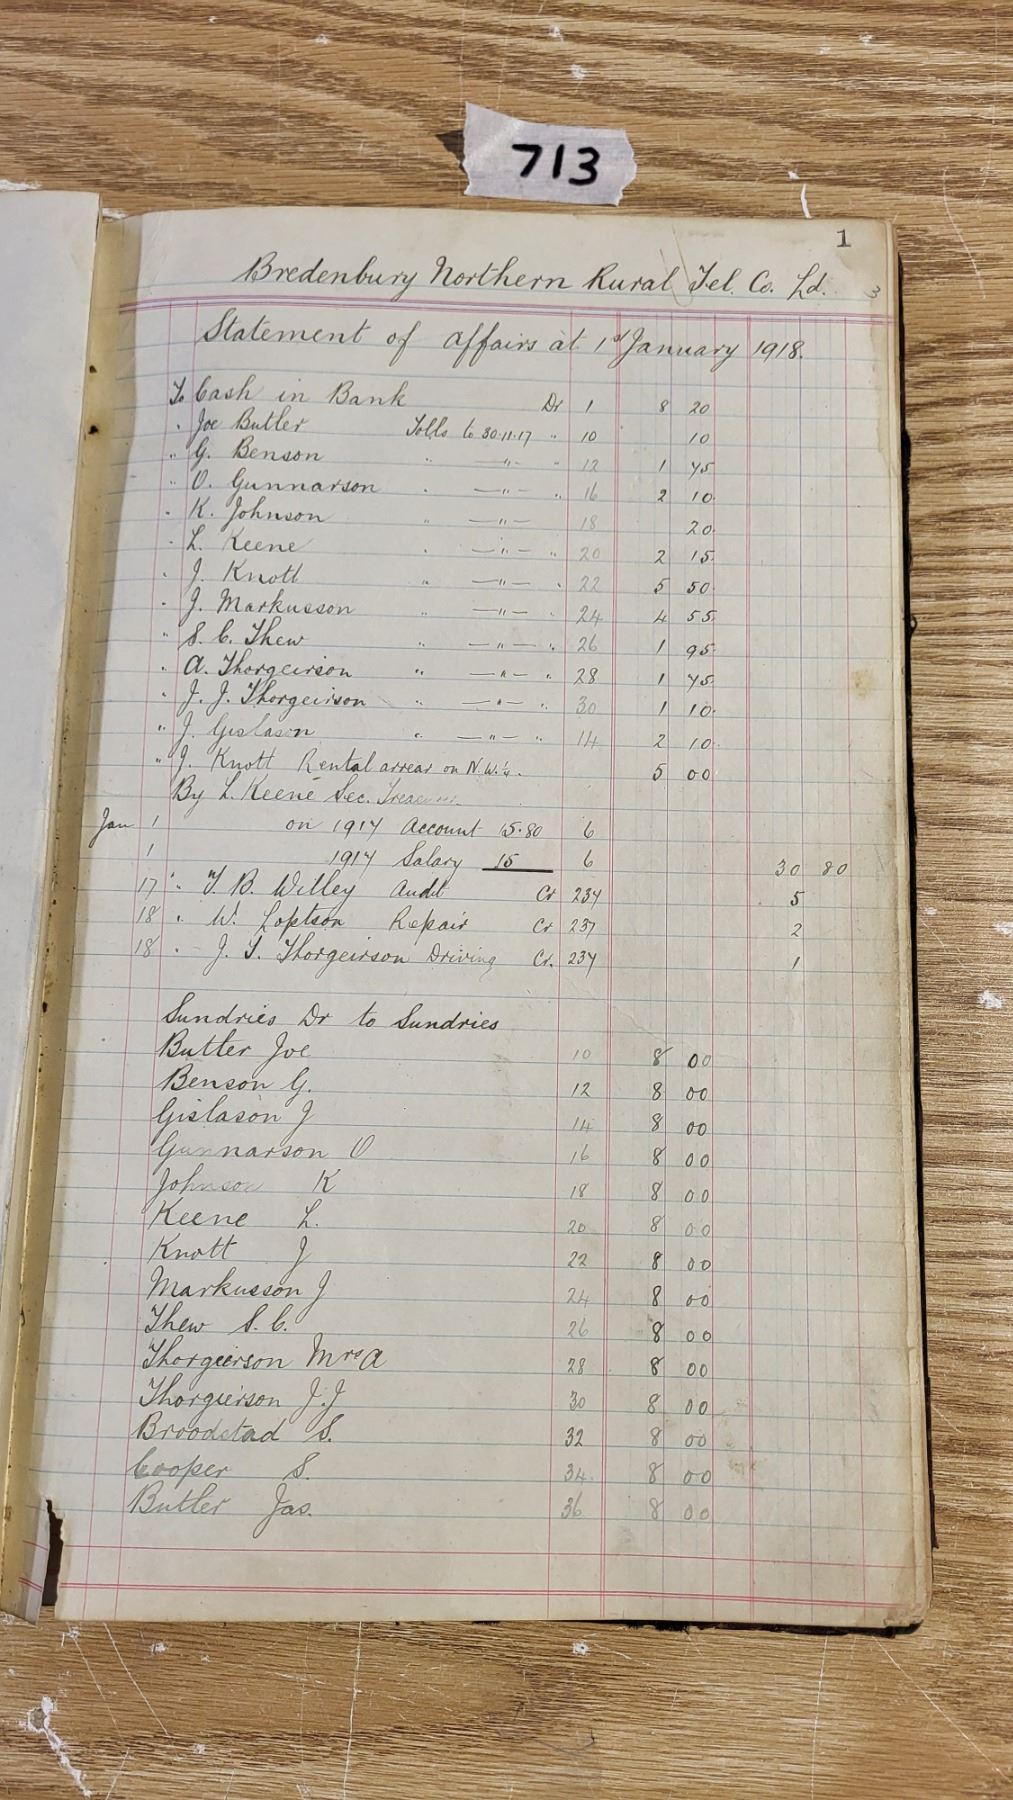 713
1
Bredenbury Northern Rural Tel. Co. Ld. 3
Statement of affairs at 1st January 1918.
To Cash in Bank Dr 1 8 20
" Joe Butler Tolls to 30.11.17 " 10 10
" G. Benson " —"— " 12 1 45
" O. Gunnarson " —"— " 16 2 10
" K. Johnson " —"— 18 20
" L. Keene " —"— " 20 2 15
" J. Knott " —"— " 22 5 50
" J. Markusson " —"— " 24 4 55
" S. C. Thew " —"— " 26 1 95
" A. Thorgeirson " —"— " 28 1 45
" J. J. Thorgeirson " —"— " 30 1 10
" J. Gislason " —"— " 14 2 10
" J. Knott Rental arrear on N.W.¼. 5 00
By L. Keene Sec. Treasurer
Jan 1 on 1917 Account 15.80 6
1 1917 Salary 15 6 30 80
17 " T. B. Willey Audit Cr 237 5
18 " W. Loptson Repair Cr 237 2
18 " J. J. Thorgeirson Driving Cr. 237 1
Sundries Dr to Sundries
Butler Joe 10 8 00
Benson G. 12 8 00
Gislason J 14 8 00
Gunnarson O 16 8 00
Johnson K 18 8 00
Keene L. 20 8 00
Knott J 22 8 00
Markusson J 24 8 00
Thew S. C. 26 8 00
Thorgeirson Mrs A 28 8 00
Thorgeirson J. J 30 8 00
Broodstad S. 32 8 00
Cooper S. 34 8 00
Butler Jas. 36 8 00